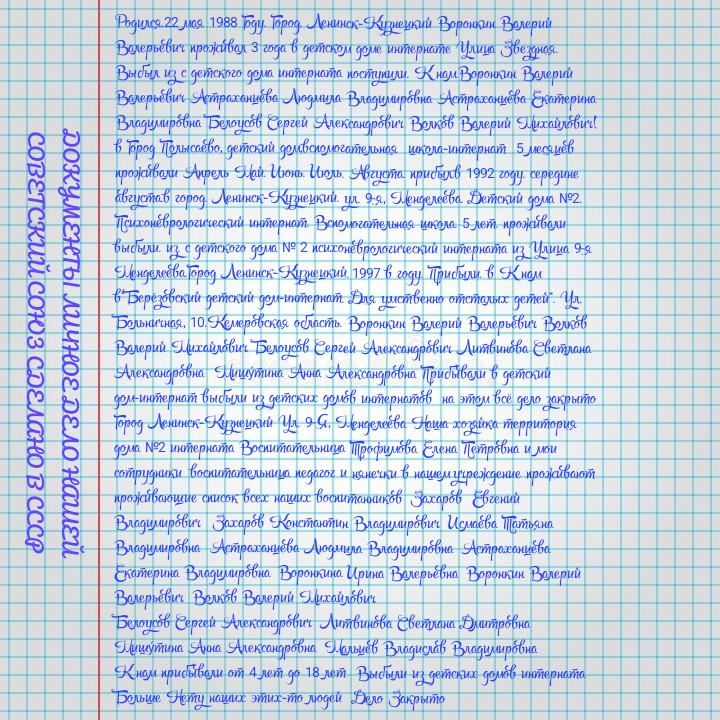 Родился.22 мая. 1988 Году. Город. Ленинск-Кузнецкий Воронкин Валерий
Валерьевич проживал 3 года в детском доме интернате Улица Звездная.
Выбыл из с детского дома интерната поступили. К нам Воронкин Валерий
Валерьевич Астраханцева Людмила Владимировна Астраханцева Екатерина
Владимировна Белоусов Сергей Александрович Волков Валерий Михайлович!
в Город Полысаево. детский дом.вспомогательная школа-интернат 5 месяцев
проживали Апрель Май. Июнь. Июль. Августа прибыл.в 1992 году. середине
августа.в город. Ленинск-Кузнецкий. ул. 9-я. Менделеева Детский дома №2.
Психоневрологический интернат. Вспомогательная школа. 5 лет. проживали
выбыли. из. с детского дома № 2 психоневрологический интерната из Улица 9-я
Менделеева.Город Ленинск-Кузнецкий. 1997 в году. Прибыли. в К нам
в"Берёзовский детский дом-интернат. Для умственно отсталых детей". Ул.
Больничная, 10. Кемеровская область. Воронкин Валерий Валерьевич Волков
Валерий Михайлович Белоусов Сергей Александрович Литвинова Светлана
Александровна Мишутина Анна Александровна Прибывали в детский
дом-интернат выбыли из детских домов интернатов на этом всё дело закрыто
Город Ленинск-Кузнецкий Ул. 9-Я. Менделеева Наша хозяйка территория
дома №2 интерната Воспитательница Трофимова Елена Петровна и мои
сотрудники воспитательница педагог и нянечки в нашем учреждение проживают
проживающие список всех наших воспитанников Захаров Евгений
Владимирович Захаров Константин Владимирович Исмаева Татьяна
Владимировна Астраханцева Людмила Владимировна Астраханцева
Екатерина Владимировна Воронкина Ирина Валерьевна Воронкин Валерий
Валерьевич Волков Валерий Михайлович
Белоусов Сергей Александрович Литвинова Светлана Дмитровна
Мишутина Анна Александровна Мальцев Владислав Владимировна
К нам прибывали от 4 лет до 18 лет Выбыли из детских домов интерната
Больше Нету наших этих-то людей Дело Закрыто
ДОКУМЕНТЫ ЛИЧНОЕ ДЕЛО НАШЕЙ
СОВЕТСКИЙ СОЮЗ СДЕЛАНО В СССР